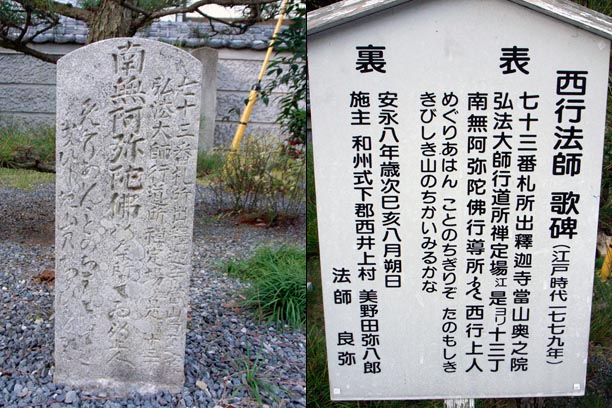 七十三番札所出釋迦寺當山奥之院
弘法大師行道所禅定
南無阿弥陀佛
西行法師 歌碑(江戸時代一七七九年)
表
七十三番札所出釋迦寺當山奥之院
弘法大師行道所禅定場江是ヨリ十三丁
南無阿弥陀佛行導所尓て西行上人
めぐりあはん ことのちぎりぞ たのもしき
きびしき山のちかいみるかな
裏
安永八年歳次巳亥八月朔日
施主 和州式下郡西井上村 美野田弥八郎
法師 良弥